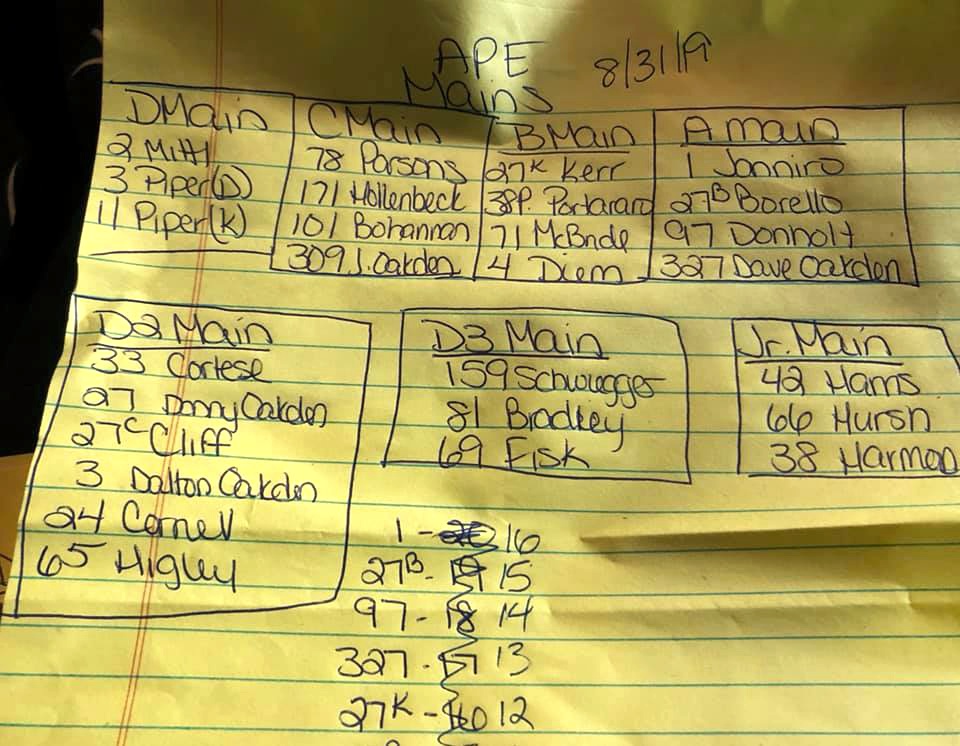 APE 8/31/19
Mains
D Main
2 Mittl
3 Piper(D)
11 Piper(K)
C Main
78 Parsons
171 Hollenbeck
101 Bohannan
309 J. Oakden
B Main
27K Kerr
38P. Portararo
71 McBride
4 Diem
A Main
1 Janniro
27B Borello
97 Donholt
327 Dave Oakden
D2 Main
33 Cortese
27 Danny Oakden
27C Cliff
3 Dalton Oakden
24 Cornell
65 Higley
D3 Main
159
81 Bradley
69 Fisk
Jr. Main
42 Harris
66 Hursh
38 Harmon
1 - 16
27B - 15
97 - 18 14
327 - 17 13
27K - 12